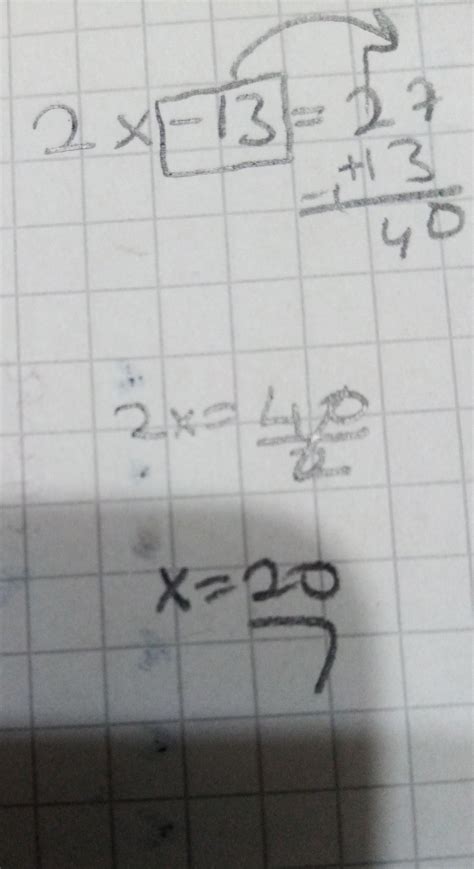 2x-13=27
+13
40
2x=40
2
x=20